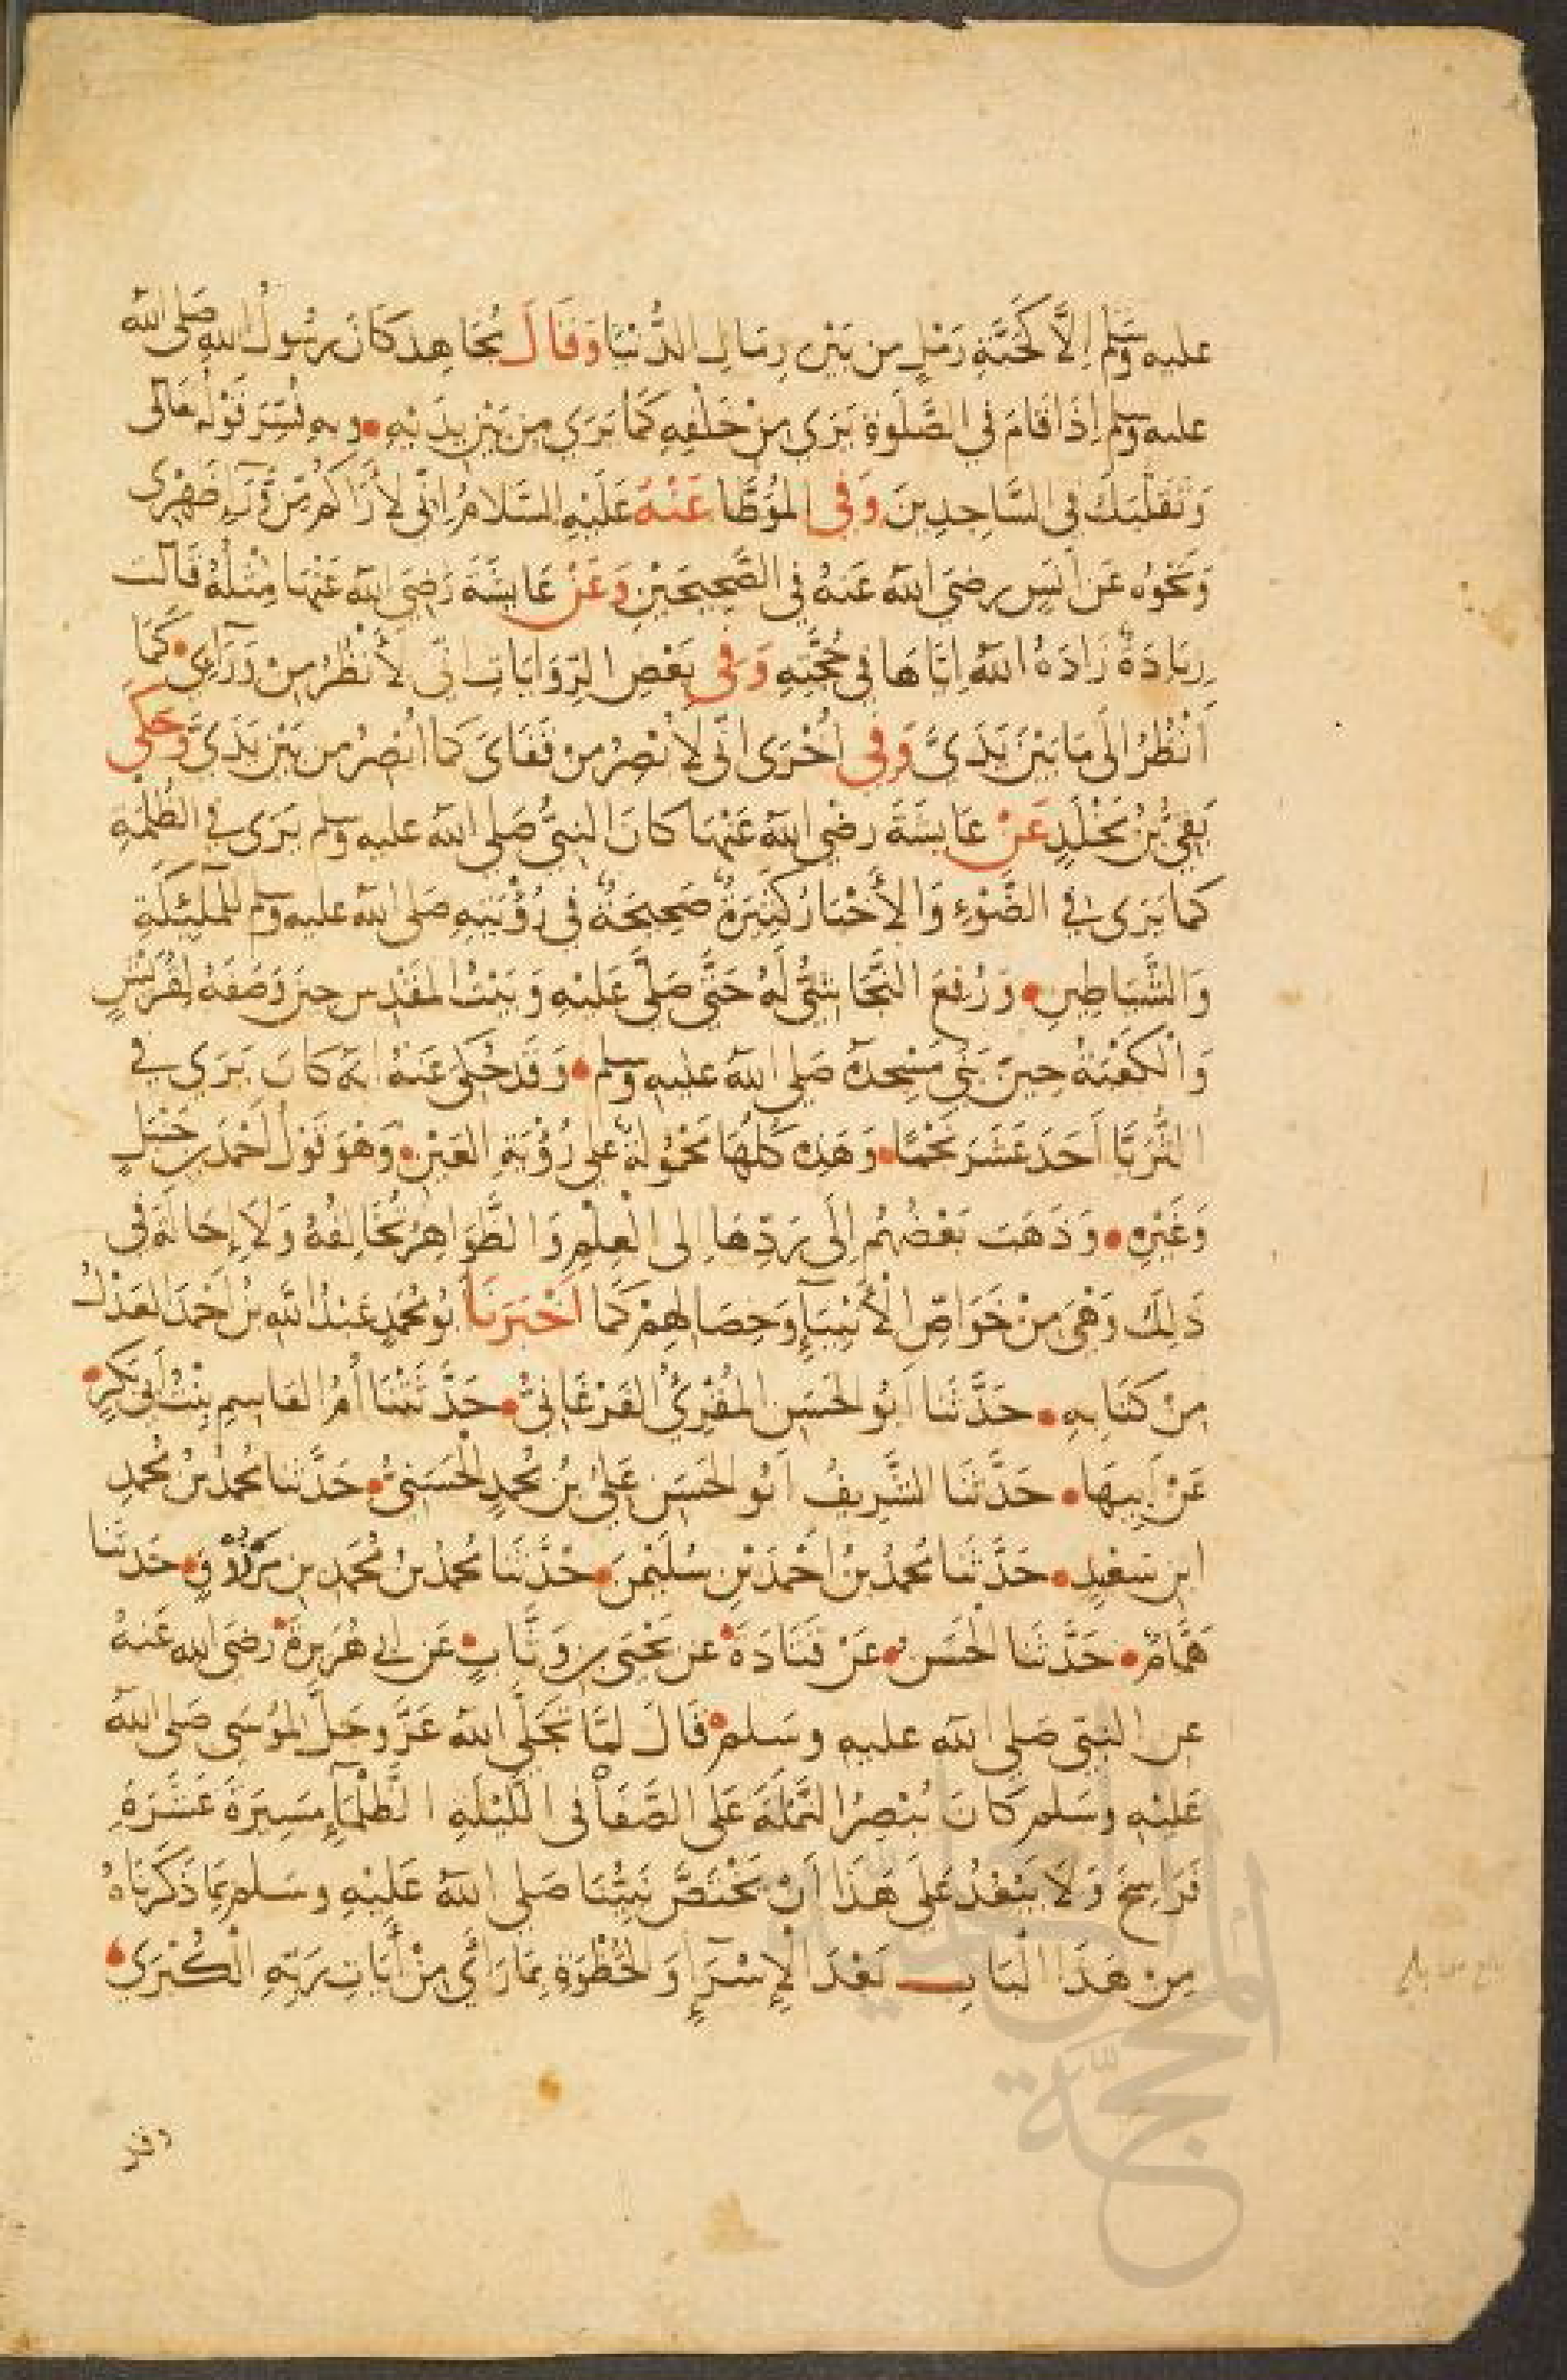 عليه وسلم إِلَّا كَحَبَّةِ رَمْلٍ من بَيْنِ رِمَالِ الدُّنْيَا وَقَالَ مُجَاهِد كَانَ رسُولُ اللهِ صَلى الله
عليه وسلم إِذَا قَامَ في الصَّلَوةِ يَرَي مِنْ خَلْفِهِ كَمَا يَرَي مِن بَيْنِ يدَيْهِ • وبِهِ فُسِّرَ قَوْلُه تعَالى
وَتَقَلُّبَكَ فى السَّاجِدِينَ وَفي المُوَطَّا عَنْهُ عَلَيْهِ السَّلامُ اِنّى لأَرَاكُمْ مِّن وَّرَآءِ ظَهْرِى
وَنَحْوُه عَن أَنَسٍ رضىَ اللهُ عَنهُ فِي الصَّحِيحَيْنِ وَعَنْ عَايشَةَ رَضِيَ اللهُ عَنْهَا مِثْلُهُ قَالَت
زِيَادَةٌ زَادَهُ اللهُ اِيَّاهَا فِي حُجَّتِهِ وَفى بَعْضِ الرِّوَايَاتِ انّى لأَنْظُرُ مِنْ وَرَآءِى • كَمَا
أَنْظُرُ الَى مَا بَيْنَ يَدَىَّ وَفِي أُخْرَى انّى لأُبْصِرُ من قَفَاىَ كمَا اُبْصِرُ من بَيْنِ يَدَىَّ وَحَكَى
بَقِيُّ بْنُ مَخْلَدٍ عَنْ عَايشَةَ رضى اللهُ عَنْهَا كانَ النبيُّ صَلى الله عليه وسلم يَرَى في الظُلمَةِ
كمَا يَرَى في الضَّوْءِ وَالأَخْبَارُ كَثِيرَةٌ صَحِيحَةٌ في رُؤْيَتِهِ صَلى الله عليه وسلم للمَلَئِكَةِ
وَالشَّيَاطِينِ • وَرُفِعَ النَّجَاشِيُّ لَهُ حَتَّى صَلَّى عَلَيْهِ وَبَيْتُ المَقْدِسِ حِينَ وَصَفَهُ لِقُرَيْشٍ
وَالْكَعْبَةُ حِينَ بَنَى مَسْجِدَهُ صَلى الله عليه وسلم • وَقَد حُكِىَ عَنهُ انهُ كانَ يَرَي في
الثُّرَيَّا اَحَدَ عَشَرَ نَجْمًا • وَهَذِه كُلُّهَا مَحْمُولَةٌ على رُؤْيَةِ العَيْنِ • وَهْوَ قَوْلُ أَحْمَدَ بنِ حَنْبَلٍ
وَغَيْرِهِ • وَذَهَبَ بَعْضُهُم إِلَى رَدِّهَا الى العِلْمِ وَالظَّوَاهِرُ تُخَالِفُهُ وَلَا إِحَالَةَ فى
ذَلِكَ وَهْىَ مِنْ خَوَاصِّ الأَنْبِيَآءِ وَخِصَالِهِمْ كَمَا اَخْبَرَنَا اَبُو مُحَمَّدٍ عَبْدُ اللهِ بْنُ اَحْمَدَ العَدْلُ
مِنْ كتَابِهِ • حَدَّثَنَا اَبُو الحَسَنِ المُقْرِئُ الفَرْغَانِيُّ • حَدَّثَتْنَا أُمُّ القَاسِمِ بِنْتُ أَبى بَكْرٍ •
عَنْ اَبِيهَا • حَدَّثَنَا الشَّرِيفُ اَبُو الحَسَنِ عَلىُّ بْنُ مُحمدٍ الحَسَنِىُّ • حَدَّثنا مُحمدُ بْنُ مُحمدِ
ابنِ سَعْيدٍ • حَدَّثَنَا مُحمدُ بْنُ اَحْمَدَ بْنِ سُلَيْمٰنَ • حَدَّثَنَا مُحمدُ بنُ مُحَمدِ بنِ مَرْزُوْقٍ • حَدثنَا
هَمَّامٌ • حَدَّثَنَا الحَسَنُ • عَنْ قَتَادَةَ • عَن يَحْيَى بنِ وَثَّابٍ • عَن أبي هُرَيرَةَ • رضىَ الله عَنهُ
عن النبىّ صَلى الله عليه وسَلم • قَالَ لمَّا تَجَلَّى اللهُ عَزَّ وجَلَّ لمُوسَى صَلى اللهُ
عَليْهِ وسَلم كَانَ يُبْصِرُ النَّمْلَةَ عَلى الصَّفَا فى اللَّيْلَةِ الظَّلْمَاءِ مَسِيرَةَ عَشَرَةِ
فَرَاسِخَ وَلَا يَبْعُدُ عَلَى هَذَا اَنْ يَخْتَصَّ نَبِيُّنَا صَلى اللهُ عَلَيْهِ وسَلم بِمَا ذَكَرْنَاهُ
مِنْ هَذَا الْبَابِ بَعْدَ الإِسْرَآءِ وَالحُظْوَةِ بِمَا رَأَى مِنْ أَيَاتِ رَبِّهِ الْكُبْرَي •
وقد
المحجة